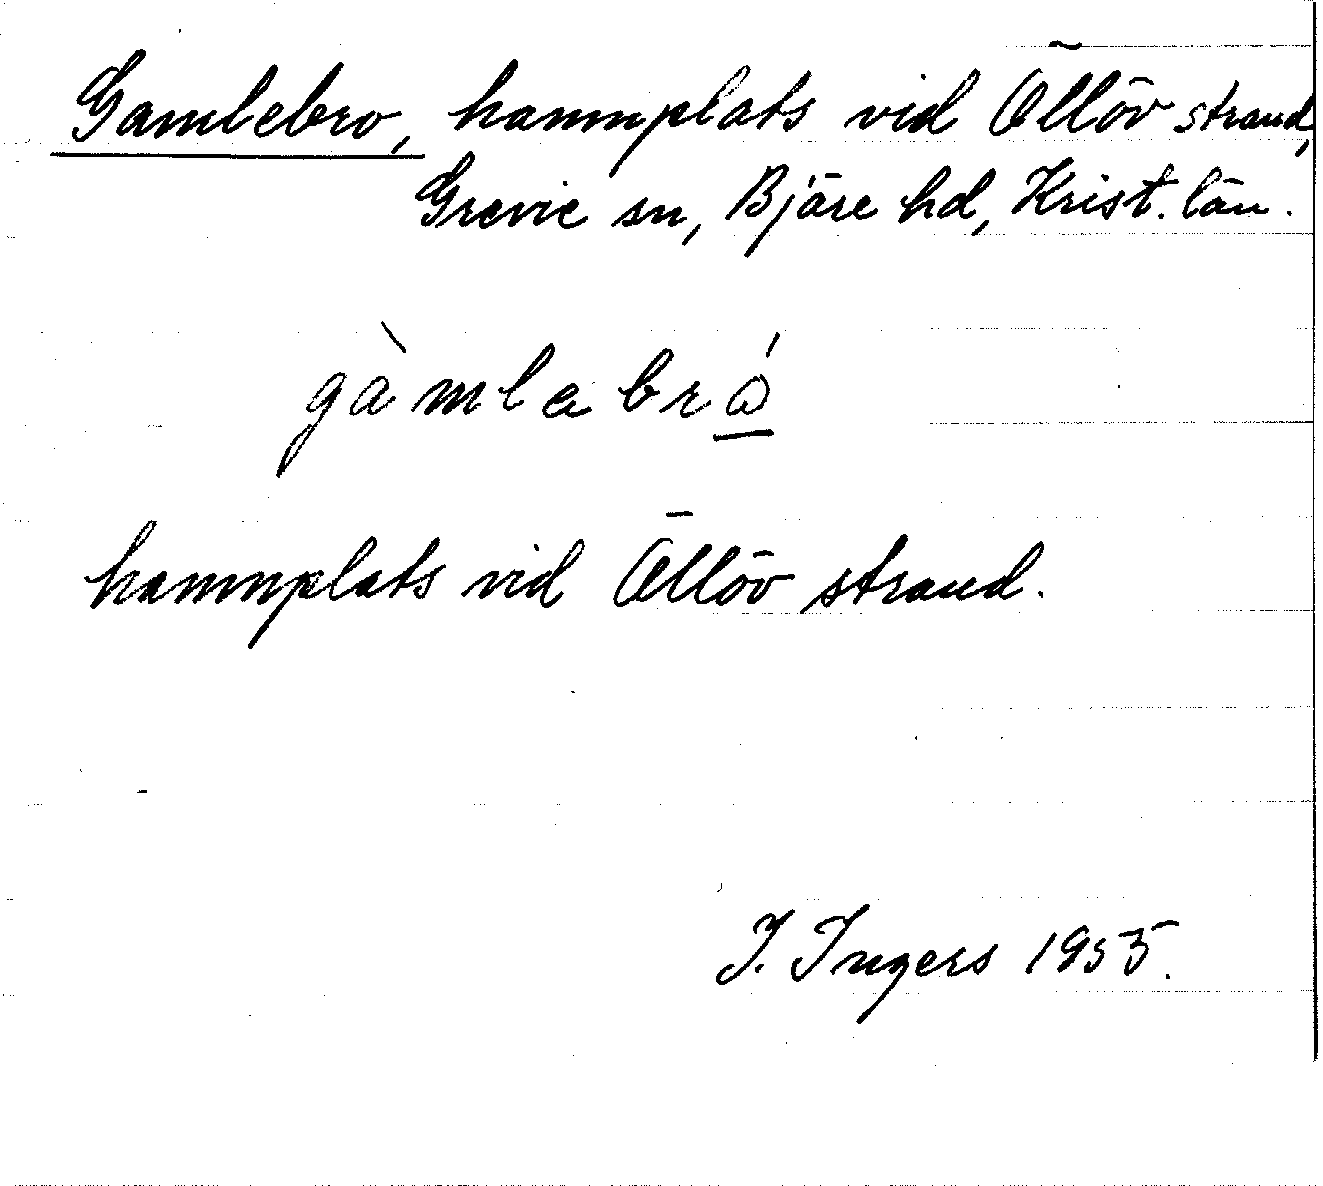 Gamlebro, hamnplats vid Öllöv strand,
Grevie sn, Bjäre hd, Krist. län.
gàmlabró
hamnplats vid Öllöv strand.
I. Ingers 1955.